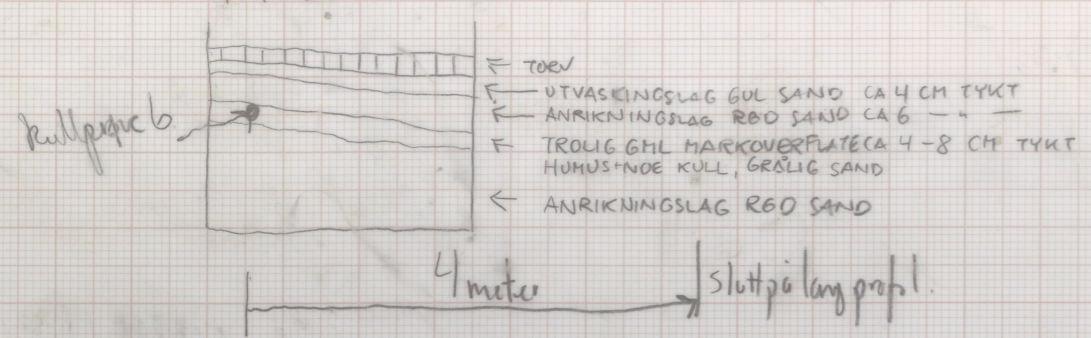 TORV
UTVASKINGSLAG GUL SAND CA 4 CM TYKT
ANRIKNINGSLAG RØD SAND CA 6 — " —
TROLIG GML MARKOVERFLATE CA 4-8 CM TYKT
HUMUS+NOE KULL, GRÅLIG SAND
ANRIKNINGSLAG RØD SAND
kullprøve 6
4 meter
Slutt på lang profil.